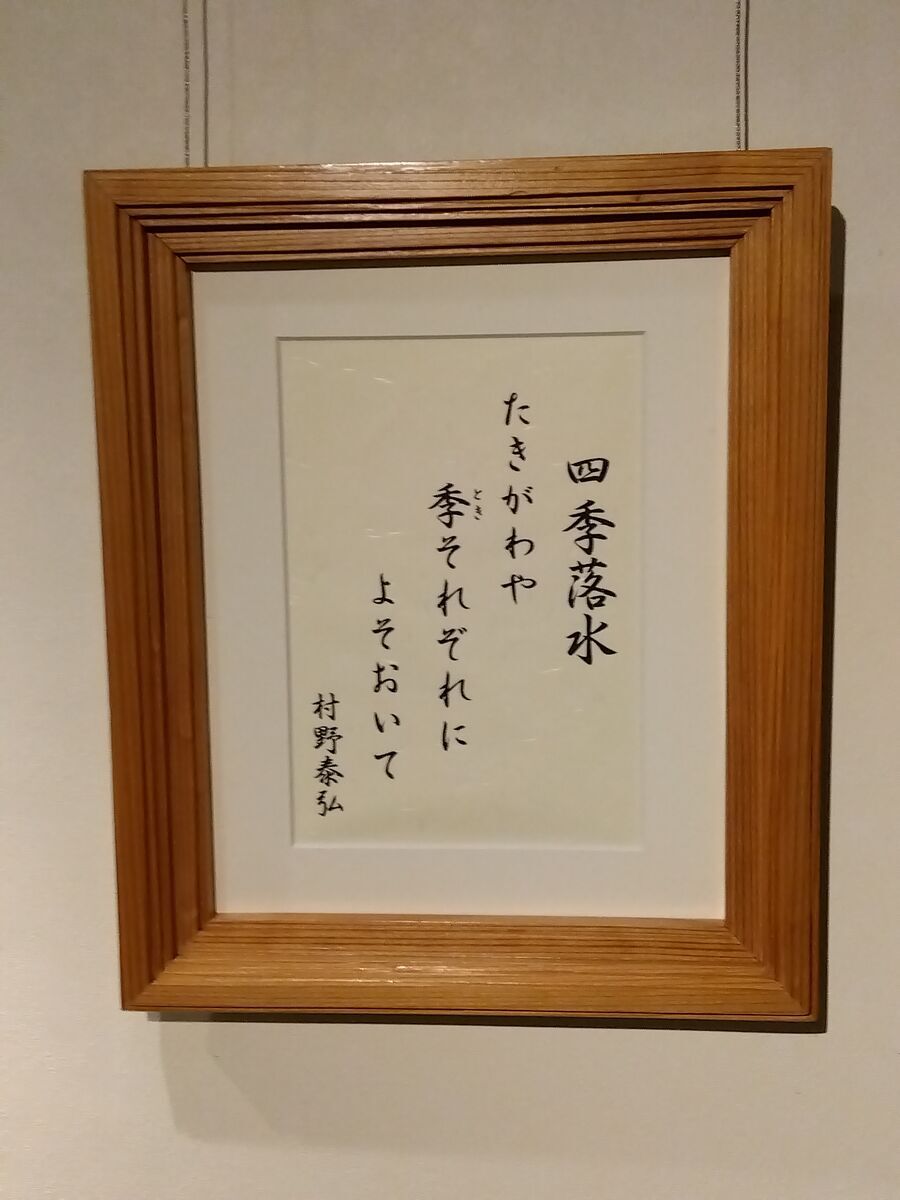 四季落水
たきがわや
季それぞれに
とき
よそおいて
村野泰弘